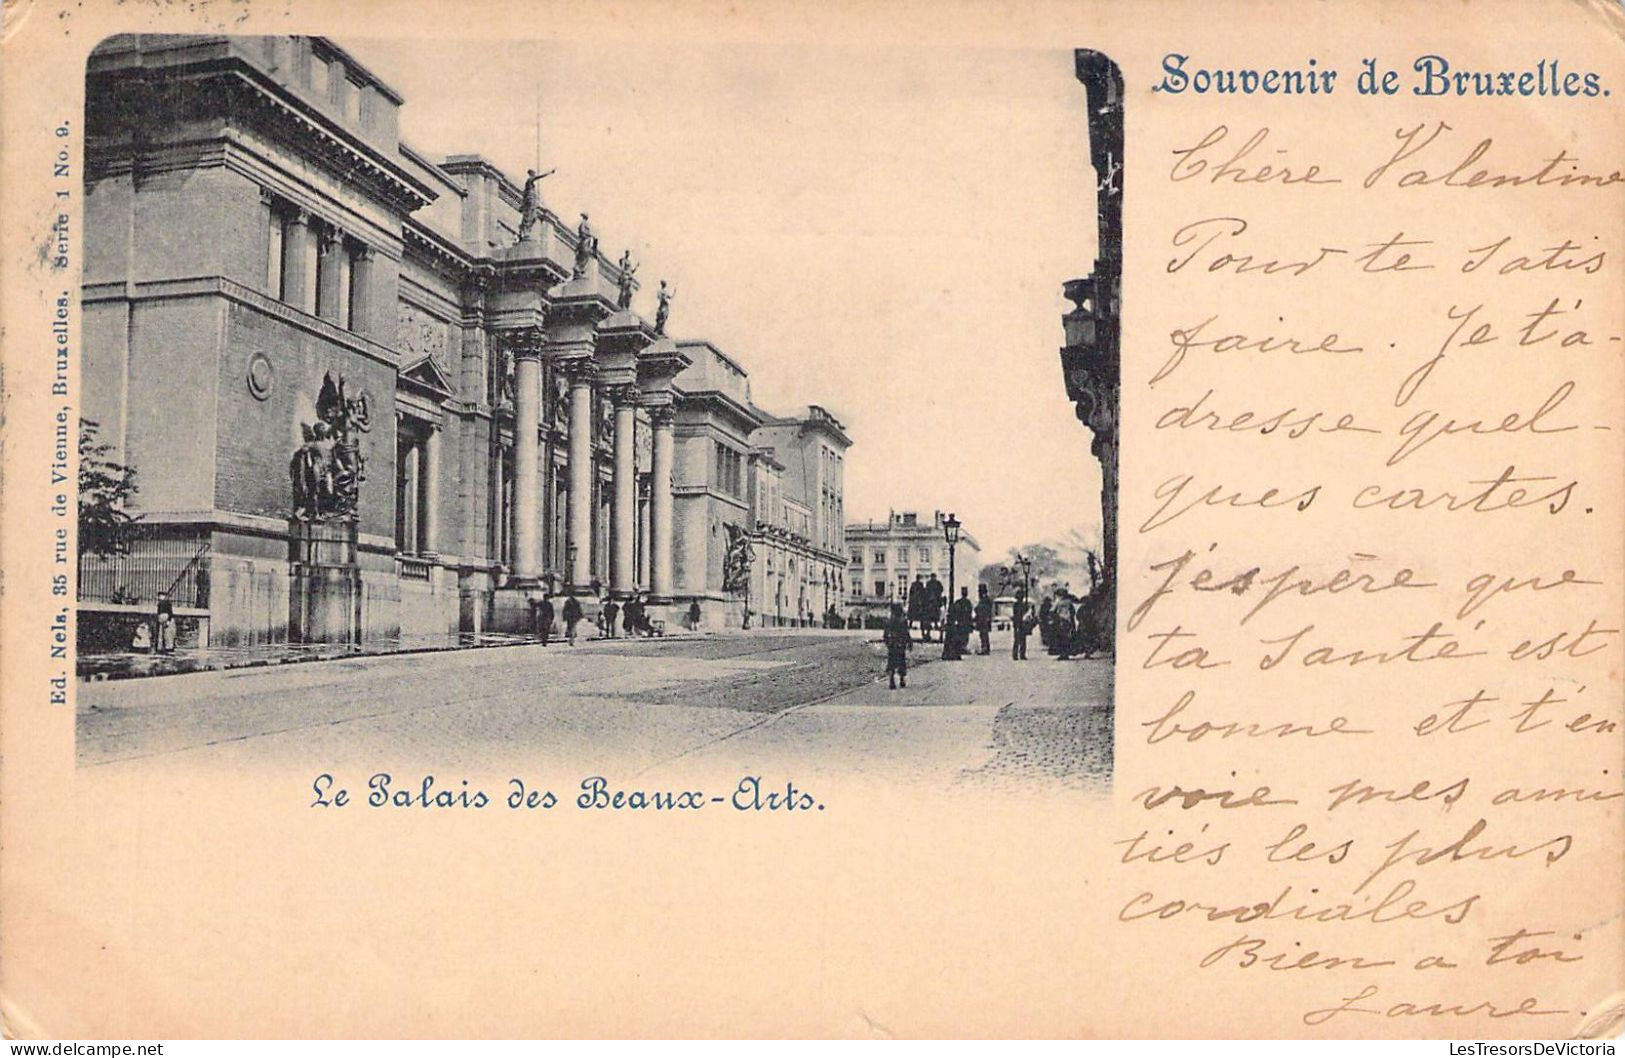 Souvenir de Bruxelles.
Chère Valentine
Pour te satis
faire. Je t'a-
dresse quel-
ques cartes.
j'espère que
ta santé est
bonne et t'en
voie mes ami
tiés les plus
cordiales
Bien a toi
Laure.
Le Palais des Beaux-Arts.
Ed. Nels, 35 rue de Vienne, Bruxelles. Serie 1 No. 9.
LesTresorsDeVictoria